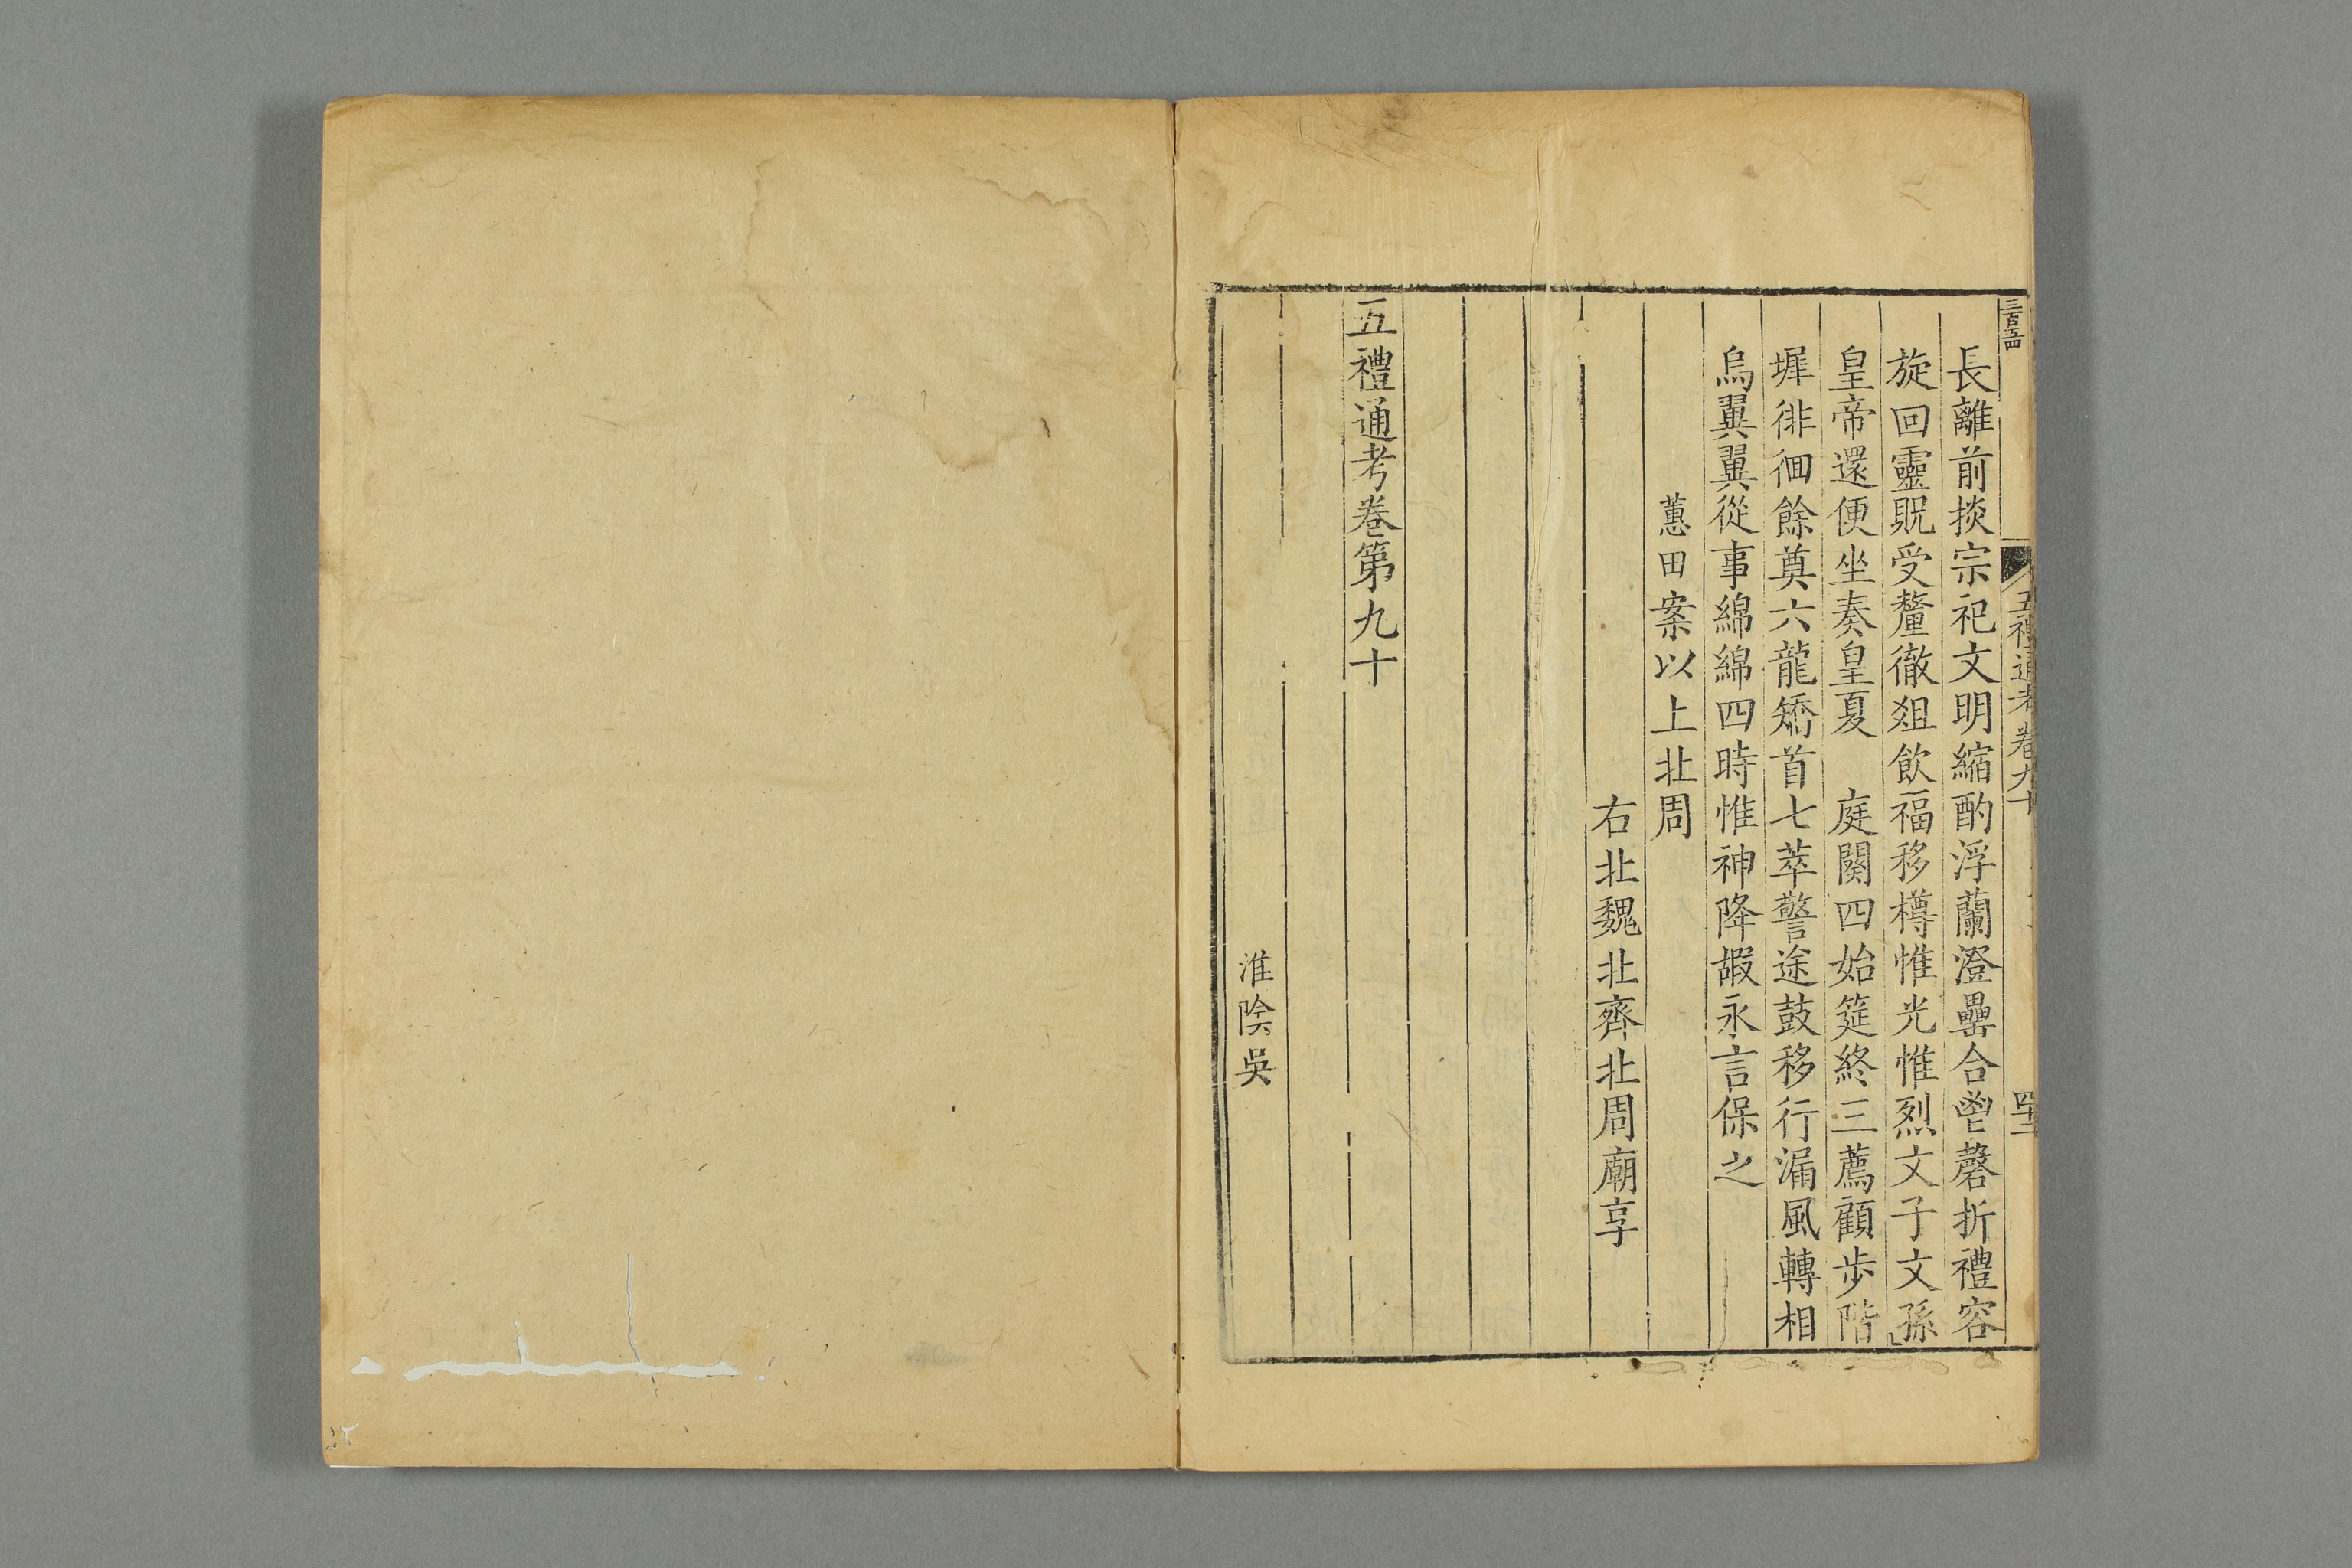 三百五四
五禮通考卷九十
四十二
長離前掞宗祀文明縮酌浮蘭澄罍合鬯磬折禮容
旋回靈貺受釐徹俎飲福移樽惟光惟烈文子文孫
皇帝還便坐奏皇夏　庭闋四始筵終三薦顧步階
墀徘徊餘奠六龍矯首七萃警途鼓移行漏風轉相
烏翼翼從事綿綿四時惟神降嘏永言保之
蕙田案以上北周
右北魏北齊北周廟享
五禮通考卷第九十
淮陰吳